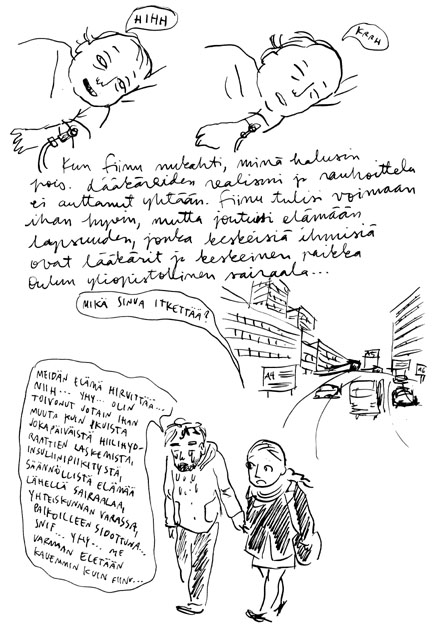 HIHH
KRRH
Kun Fiinu nukahti, minä halusin
pois. Lääkäreiden realismi ja rauhoittelu
ei auttanut yhtään. Fiinu tulisi voimaan
ihan hyvin, mutta joutuisi elämään
lapsuuden, jonka keskeisiä ihmisiä
ovat lääkärit ja keskeinen paikka
Oulun yliopistollinen sairaala...
MIKÄ SINUA ITKETTÄÄ?
A4
A5
MEIDÄN ELÄMÄ HIRVITTÄÄ...
NIIH... YHY... OLIN
TOIVONUT JOTAIN IHAN
MUUTA KUIN IKUISTA
JOKAPÄIVÄISTÄ HIILIHYD-
RAATTIEN LASKEMISTA,
INSULIINIPIIKITYSTÄ,
SÄÄNNÖLLISTÄ ELÄMÄÄ
LÄHELLÄ SAIRAALAA,
YHTEISKUNNAN VARASSA,
PAIKOILLEEN SIDOTTUNA...
SNIF... YHY... ME
VARMAAN ELETÄÄN
KAUEMMIN KUIN FIINU...